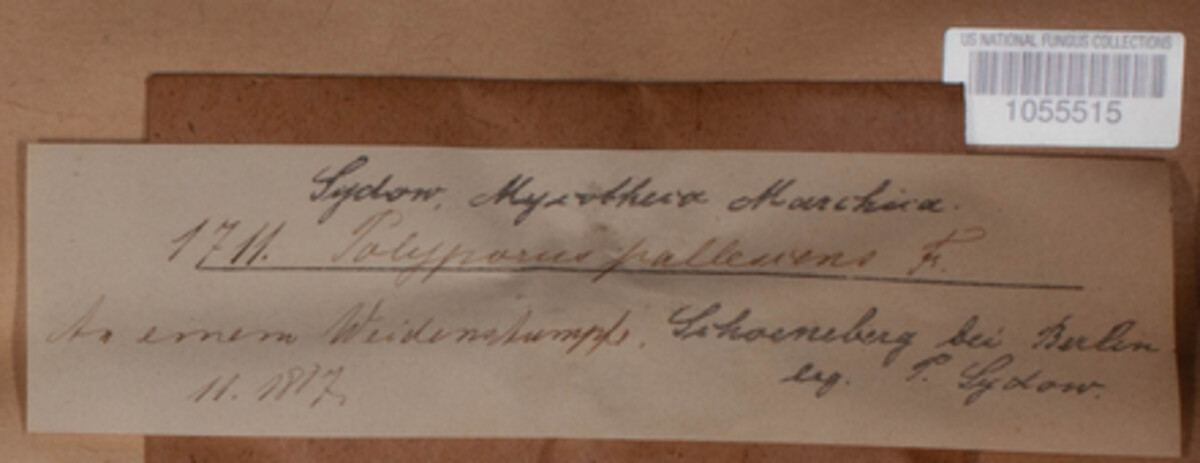 US NATIONAL FUNGUS COLLECTIONS
1055515
Sydow, Mycotheca Marchica.
1711. Polyporus pallescens Fr.
An einem Weidenstumpfe, Schoeneberg bei Berlin
11. 1887. leg. P. Sydow.